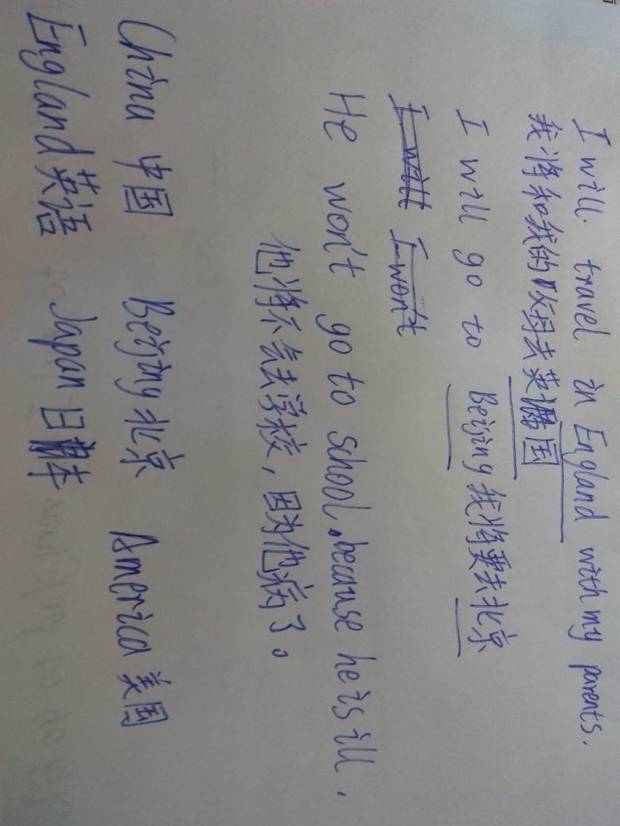 I will travel in England with my parents.
我将和我的父母去英国
I will go to Beijing 我将要去北京
I will I won't
He won't go to school, because he is ill.
他将不会去学校，因为他病了。
China 中国 Beijing 北京 America 美国
England 英语 Japan 日本